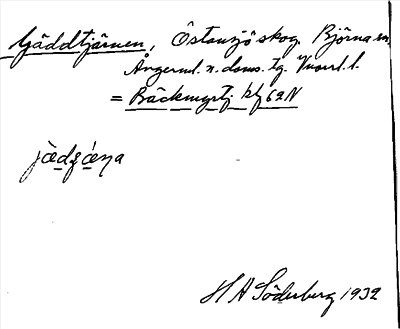 Gäddtjärnen, Östansjö skog. Björna sn.
Ångerml. n. doms. tg. Vnorrl. l.
= Bäckmyrtj kbl 62 N
H A Söderberg 1932